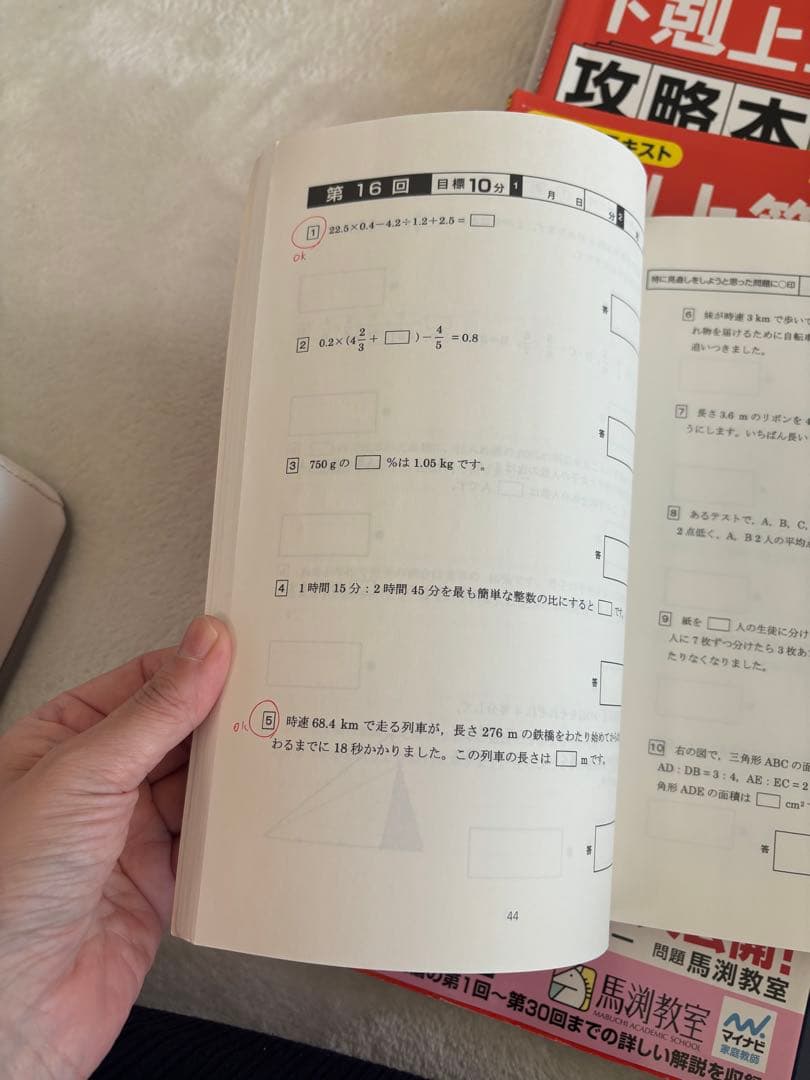 下剋上
攻略本
キスト
第16回 目標10分 1 月 日 分 2
1 22.5×0.4−4.2÷1.2+2.5=□
ok
答
2 0.2×(4 2/3 + □)− 4/5 =0.8
答
3 750 g の □ %は 1.05 kg です。
答
4 1時間15分：2時間45分を最も簡単な整数の比にすると □ です。
答
ok
5 時速 68.4 km で走る列車が，長さ 276 m の鉄橋をわたり始めてから
わるまでに 18 秒かかりました。この列車の長さは □ m です。
答
44
特に見直しをしようと思った問題に○印
6 妹が時速 3 km で歩いて
れ物を届けるために自転車
追いつきました。
7 長さ 3.6 m のリボンを 4
うにします。いちばん長い
8 あるテストで，A，B，C，
2点低く，A，B 2人の平均点
9 紙を □ 人の生徒に分け
人に7枚ずつ分けたら3枚あ
たりなくなりました。
10 右の図で，三角形 ABC の面
AD：DB＝3：4，AE：EC＝2
角形 ADE の面積は □ cm²
答
公開!
問題 馬渕教室
馬渕教室
MABUCHI ACADEMIC SCHOOL
マイナビ
家庭教師
の第1回〜第30回までの詳しい解説を収録